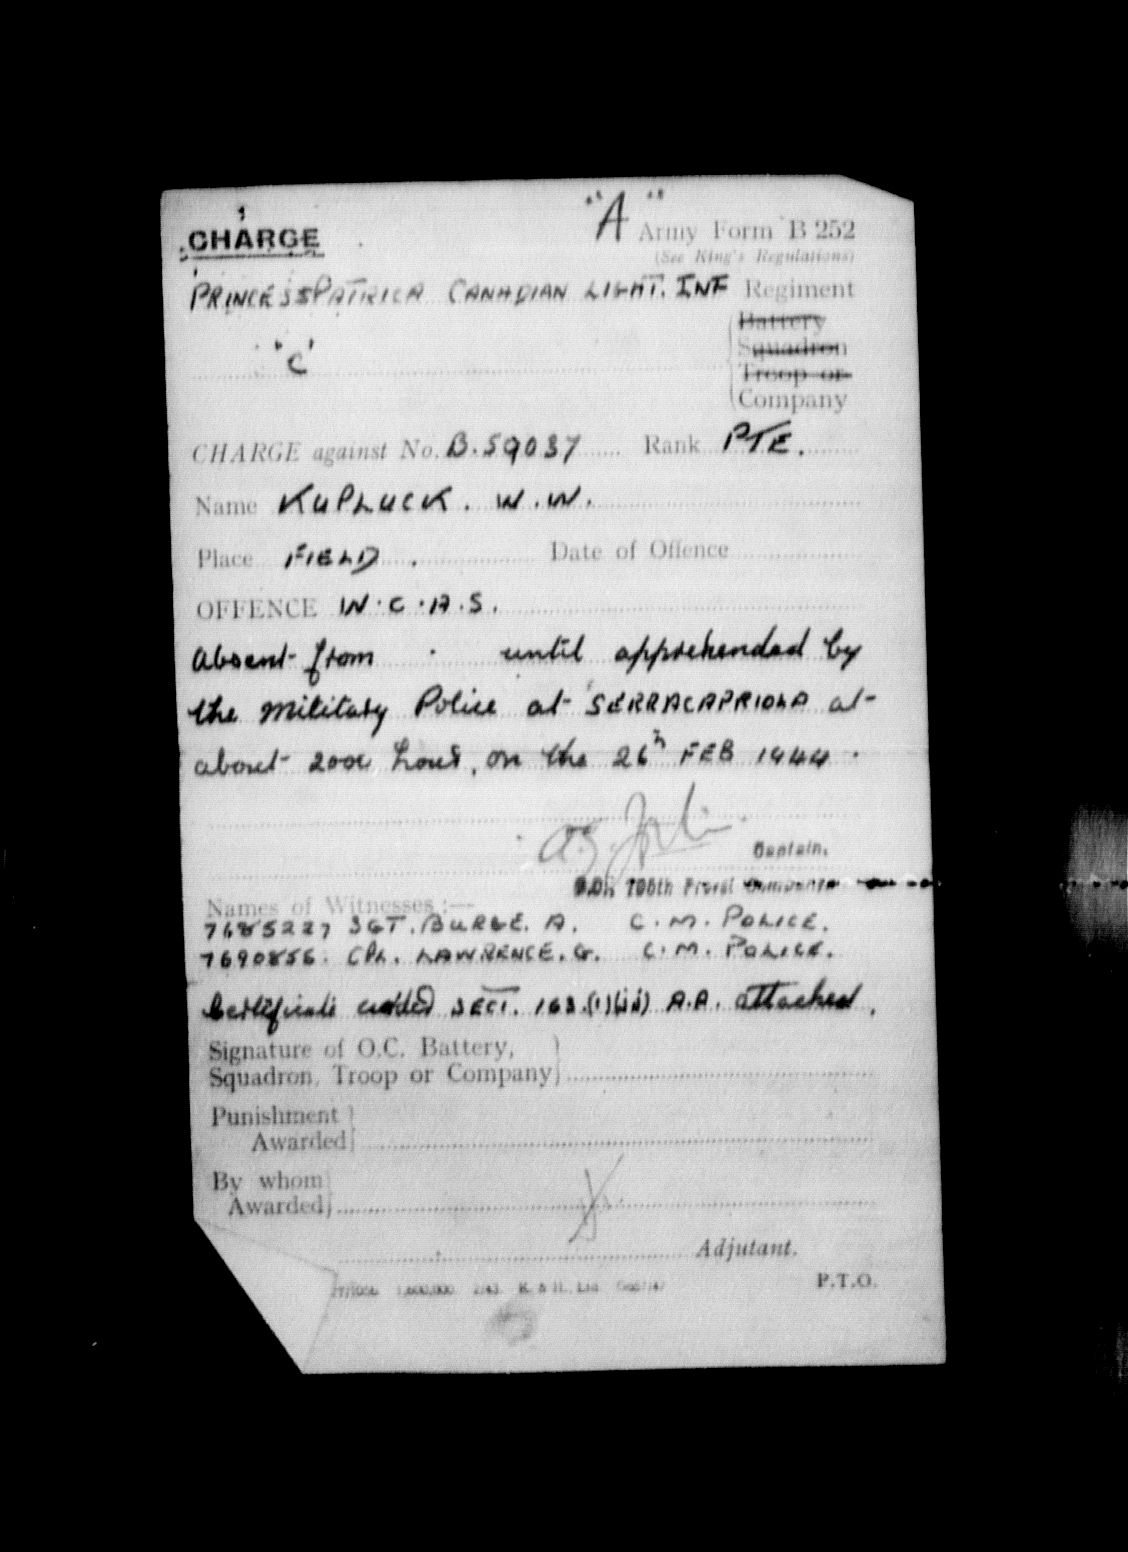 "A"
CHARGE
Army Form B 252
(See King's Regulations)
PRINCESS PATRICA CANADIAN LIGHT. INF Regiment
Battery
Squadron
'C'
Troop or
Company
CHARGE against No. B.59037 Rank PTE.
Name KUPLUCK. W.W.
Place FIELD. Date of Offence
OFFENCE W.O.A.S.
Absent from until apprehended by
the Military Police at SERRACAPRIOLA at
about 2000 hours, on the 26th FEB 1944.
Captain.
Names of Witnesses :—
7685227 SGT. BURGE. A. C.M. POLICE.
7690856. CPL. LAWRENCE. G. C.M. POLICE.
Certificate SECT. 163.(1) A.A. attached.
Signature of O.C. Battery,
Squadron, Troop or Company
Punishment
Awarded
By whom
Awarded
Adjutant.
P.T.O.